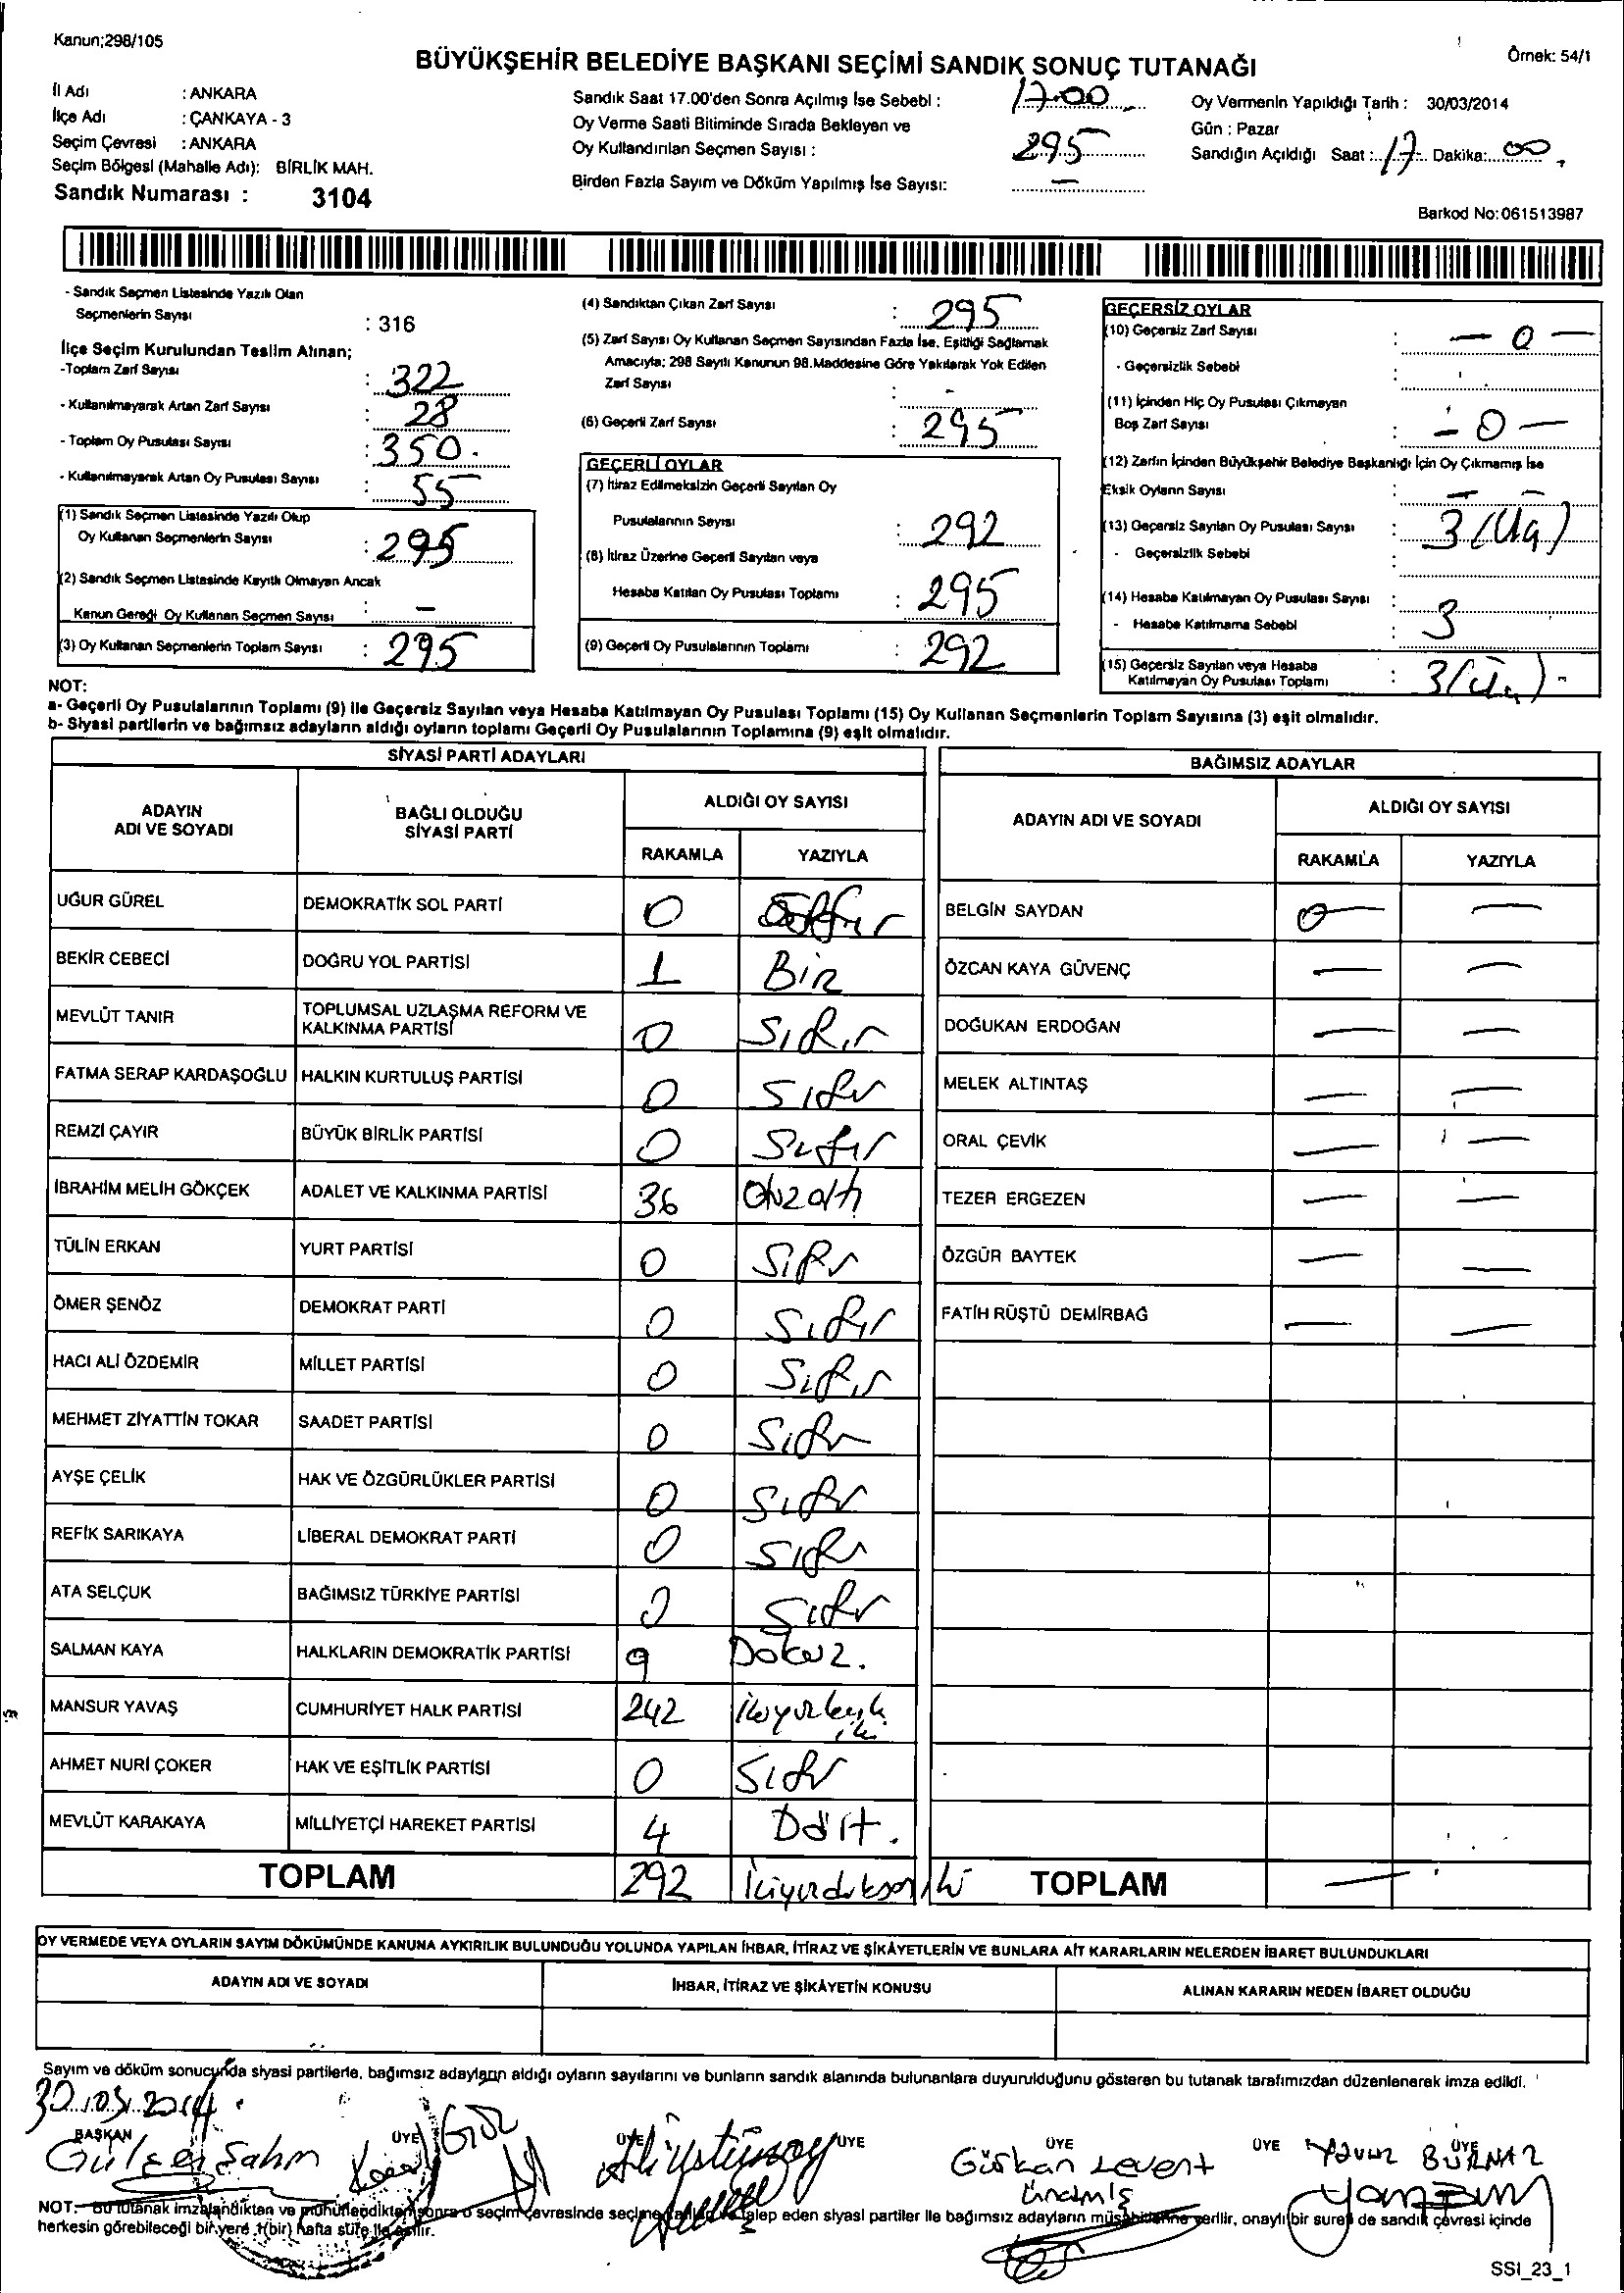 Kanun;298/105
BÜYÜKŞEHİR BELEDİYE BAŞKANI SEÇİMİ SANDIK SONUÇ TUTANAĞI
Örnek: 54/1
İl Adı : ANKARA
İlçe Adı : ÇANKAYA - 3
Seçim Çevresi : ANKARA
Seçim Bölgesi (Mahalle Adı): BİRLİK MAH.
Sandık Numarası : 3104
Sandık Saat 17.00'den Sonra Açılmış İse Sebebi : 17.00
Oy Verme Saati Bitiminde Sırada Bekleyen ve
Oy Kullandırılan Seçmen Sayısı : 295
Birden Fazla Sayım ve Döküm Yapılmış İse Sayısı: —
Oy Vermenin Yapıldığı Tarih : 30/03/2014
Gün : Pazar
Sandığın Açıldığı Saat : 17 Dakika: 00
Barkod No:061513987
- Sandık Seçmen Listesinde Yazılı Olan
Seçmenlerin Sayısı : 316
İlçe Seçim Kurulundan Teslim Alınan;
-Toplam Zarf Sayısı : 322
- Kullanılmayarak Artan Zarf Sayısı : 28
- Toplam Oy Pusulası Sayısı : 350.
- Kullanılmayarak Artan Oy Pusulası Sayısı : 55
(1) Sandık Seçmen Listesinde Yazılı Olup
Oy Kullanan Seçmenlerin Sayısı : 295
(2) Sandık Seçmen Listesinde Kayıtlı Olmayan Ancak
Kanun Gereği Oy Kullanan Seçmen Sayısı : —
(3) Oy Kullanan Seçmenlerin Toplam Sayısı : 295
(4) Sandıktan Çıkan Zarf Sayısı : 295
(5) Zarf Sayısı Oy Kullanan Seçmen Sayısından Fazla İse, Eşitliği Sağlamak
Amacıyla; 298 Sayılı Kanunun 98.Maddesine Göre Yakılarak Yok Edilen
Zarf Sayısı : -
(6) Geçerli Zarf Sayısı : 295
GEÇERLİ OYLAR
(7) İtiraz Edilmeksizin Geçerli Sayılan Oy
Pusulalarının Sayısı : 292
(8) İtiraz Üzerine Geçerli Sayılan veya
Hesaba Katılan Oy Pusulası Toplamı : 295
(9) Geçerli Oy Pusulalarının Toplamı : 292
GEÇERSİZ OYLAR
(10) Geçersiz Zarf Sayısı : — 0 —
- Geçersizlik Sebebi :
(11) İçinden Hiç Oy Pusulası Çıkmayan
Boş Zarf Sayısı : - 0 —
(12) Zarfın İçinden Büyükşehir Belediye Başkanlığı İçin Oy Çıkmamış İse
Eksik Oyların Sayısı : — —
(13) Geçersiz Sayılan Oy Pusulası Sayısı : 3 (Üç)
- Geçersizlik Sebebi :
(14) Hesaba Katılmayan Oy Pusulası Sayısı : 3
- Hesaba Katılmama Sebebi :
(15) Geçersiz Sayılan veya Hesaba
Katılmayan Oy Pusulası Toplamı : 3 (Üç) -
NOT:
a- Geçerli Oy Pusulalarının Toplamı (9) ile Geçersiz Sayılan veya Hesaba Katılmayan Oy Pusulası Toplamı (15) Oy Kullanan Seçmenlerin Toplam Sayısına (3) eşit olmalıdır.
b- Siyasi partilerin ve bağımsız adayların aldığı oyların toplamı Geçerli Oy Pusulalarının Toplamına (9) eşit olmalıdır.
SİYASİ PARTİ ADAYLARI
ADAYIN ADI VE SOYADI
BAĞLI OLDUĞU SİYASİ PARTİ
ALDIĞI OY SAYISI
RAKAMLA YAZIYLA
UĞUR GÜREL DEMOKRATİK SOL PARTİ 0 Sıfır
BEKİR CEBECİ DOĞRU YOL PARTİSİ 1 BİR
MEVLÜT TANIR TOPLUMSAL UZLAŞMA REFORM VE KALKINMA PARTİSİ 0 Sıfır
FATMA SERAP KARDAŞOĞLU HALKIN KURTULUŞ PARTİSİ 0 Sıfır
REMZİ ÇAYIR BÜYÜK BİRLİK PARTİSİ 0 Sıfır
İBRAHİM MELİH GÖKÇEK ADALET VE KALKINMA PARTİSİ 36 Otuzaltı
TÜLİN ERKAN YURT PARTİSİ 0 Sıfır
ÖMER ŞENÖZ DEMOKRAT PARTİ 0 Sıfır
HACI ALİ ÖZDEMİR MİLLET PARTİSİ 0 Sıfır
MEHMET ZİYATTİN TOKAR SAADET PARTİSİ 0 Sıfır
AYŞE ÇELİK HAK VE ÖZGÜRLÜKLER PARTİSİ 0 Sıfır
REFİK SARIKAYA LİBERAL DEMOKRAT PARTİ 0 Sıfır
ATA SELÇUK BAĞIMSIZ TÜRKİYE PARTİSİ 0 Sıfır
SALMAN KAYA HALKLARIN DEMOKRATİK PARTİSİ 9 Dokuz.
MANSUR YAVAŞ CUMHURİYET HALK PARTİSİ 242 iki
AHMET NURİ ÇOKER HAK VE EŞİTLİK PARTİSİ 0 Sıfır
MEVLÜT KARAKAYA MİLLİYETÇİ HAREKET PARTİSİ 4 Dört.
TOPLAM 292 İkiyüzdoksaniki
BAĞIMSIZ ADAYLAR
ADAYIN ADI VE SOYADI
ALDIĞI OY SAYISI
RAKAMLA YAZIYLA
BELGİN SAYDAN 0— —
ÖZCAN KAYA GÜVENÇ — —
DOĞUKAN ERDOĞAN — —
MELEK ALTINTAŞ — —
ORAL ÇEVİK — —
TEZER ERGEZEN — —
ÖZGÜR BAYTEK — —
FATİH RÜŞTÜ DEMİRBAĞ — —
TOPLAM —
OY VERMEDE VEYA OYLARIN SAYIM DÖKÜMÜNDE KANUNA AYKIRILIK BULUNDUĞU YOLUNDA YAPILAN İHBAR, İTİRAZ VE ŞİKÂYETLERİN VE BUNLARA AİT KARARLARIN NELERDEN İBARET BULUNDUKLARI
ADAYIN ADI VE SOYADI İHBAR, İTİRAZ VE ŞİKÂYETİN KONUSU ALINAN KARARIN NEDEN İBARET OLDUĞU
Sayım ve döküm sonucunda siyasi partilerle, bağımsız adayların aldığı oyların sayılarını ve bunların sandık alanında bulunanlara duyurulduğunu gösteren bu tutanak tarafımızdan düzenlenerek imza edildi.
30.03.2014
BAŞKAN ÜYE ÜYE ÜYE ÜYE ÜYE ÜYE
Şahin
Gürkan Levent
Yavuz BURNAZ
NOT:- Bu tutanak imzalandıktan ve mühürlendikten sonra o seçim çevresinde seçime katılan ve talep eden siyasi partiler ile bağımsız adayların müşahitlerine verilir, onaylı bir sureti de sandık çevresi içinde
herkesin görebileceği bir yere 1(bir) hafta süre ile asılır.
SSI_23_1